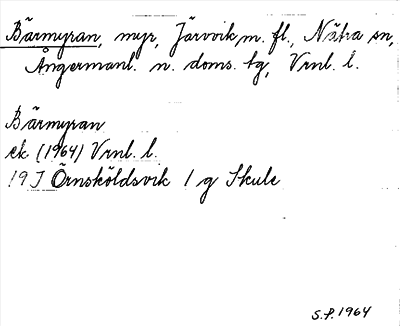 Bärmyran, myr, Järvvik m. fl., Nätra sn,
Ångermanl. n. doms. tg, Vrnl. l.
Bärmyran
ek (1964) Vrnl. l.
19J Örnsköldsvik 1 g Skule
S.P. 1964